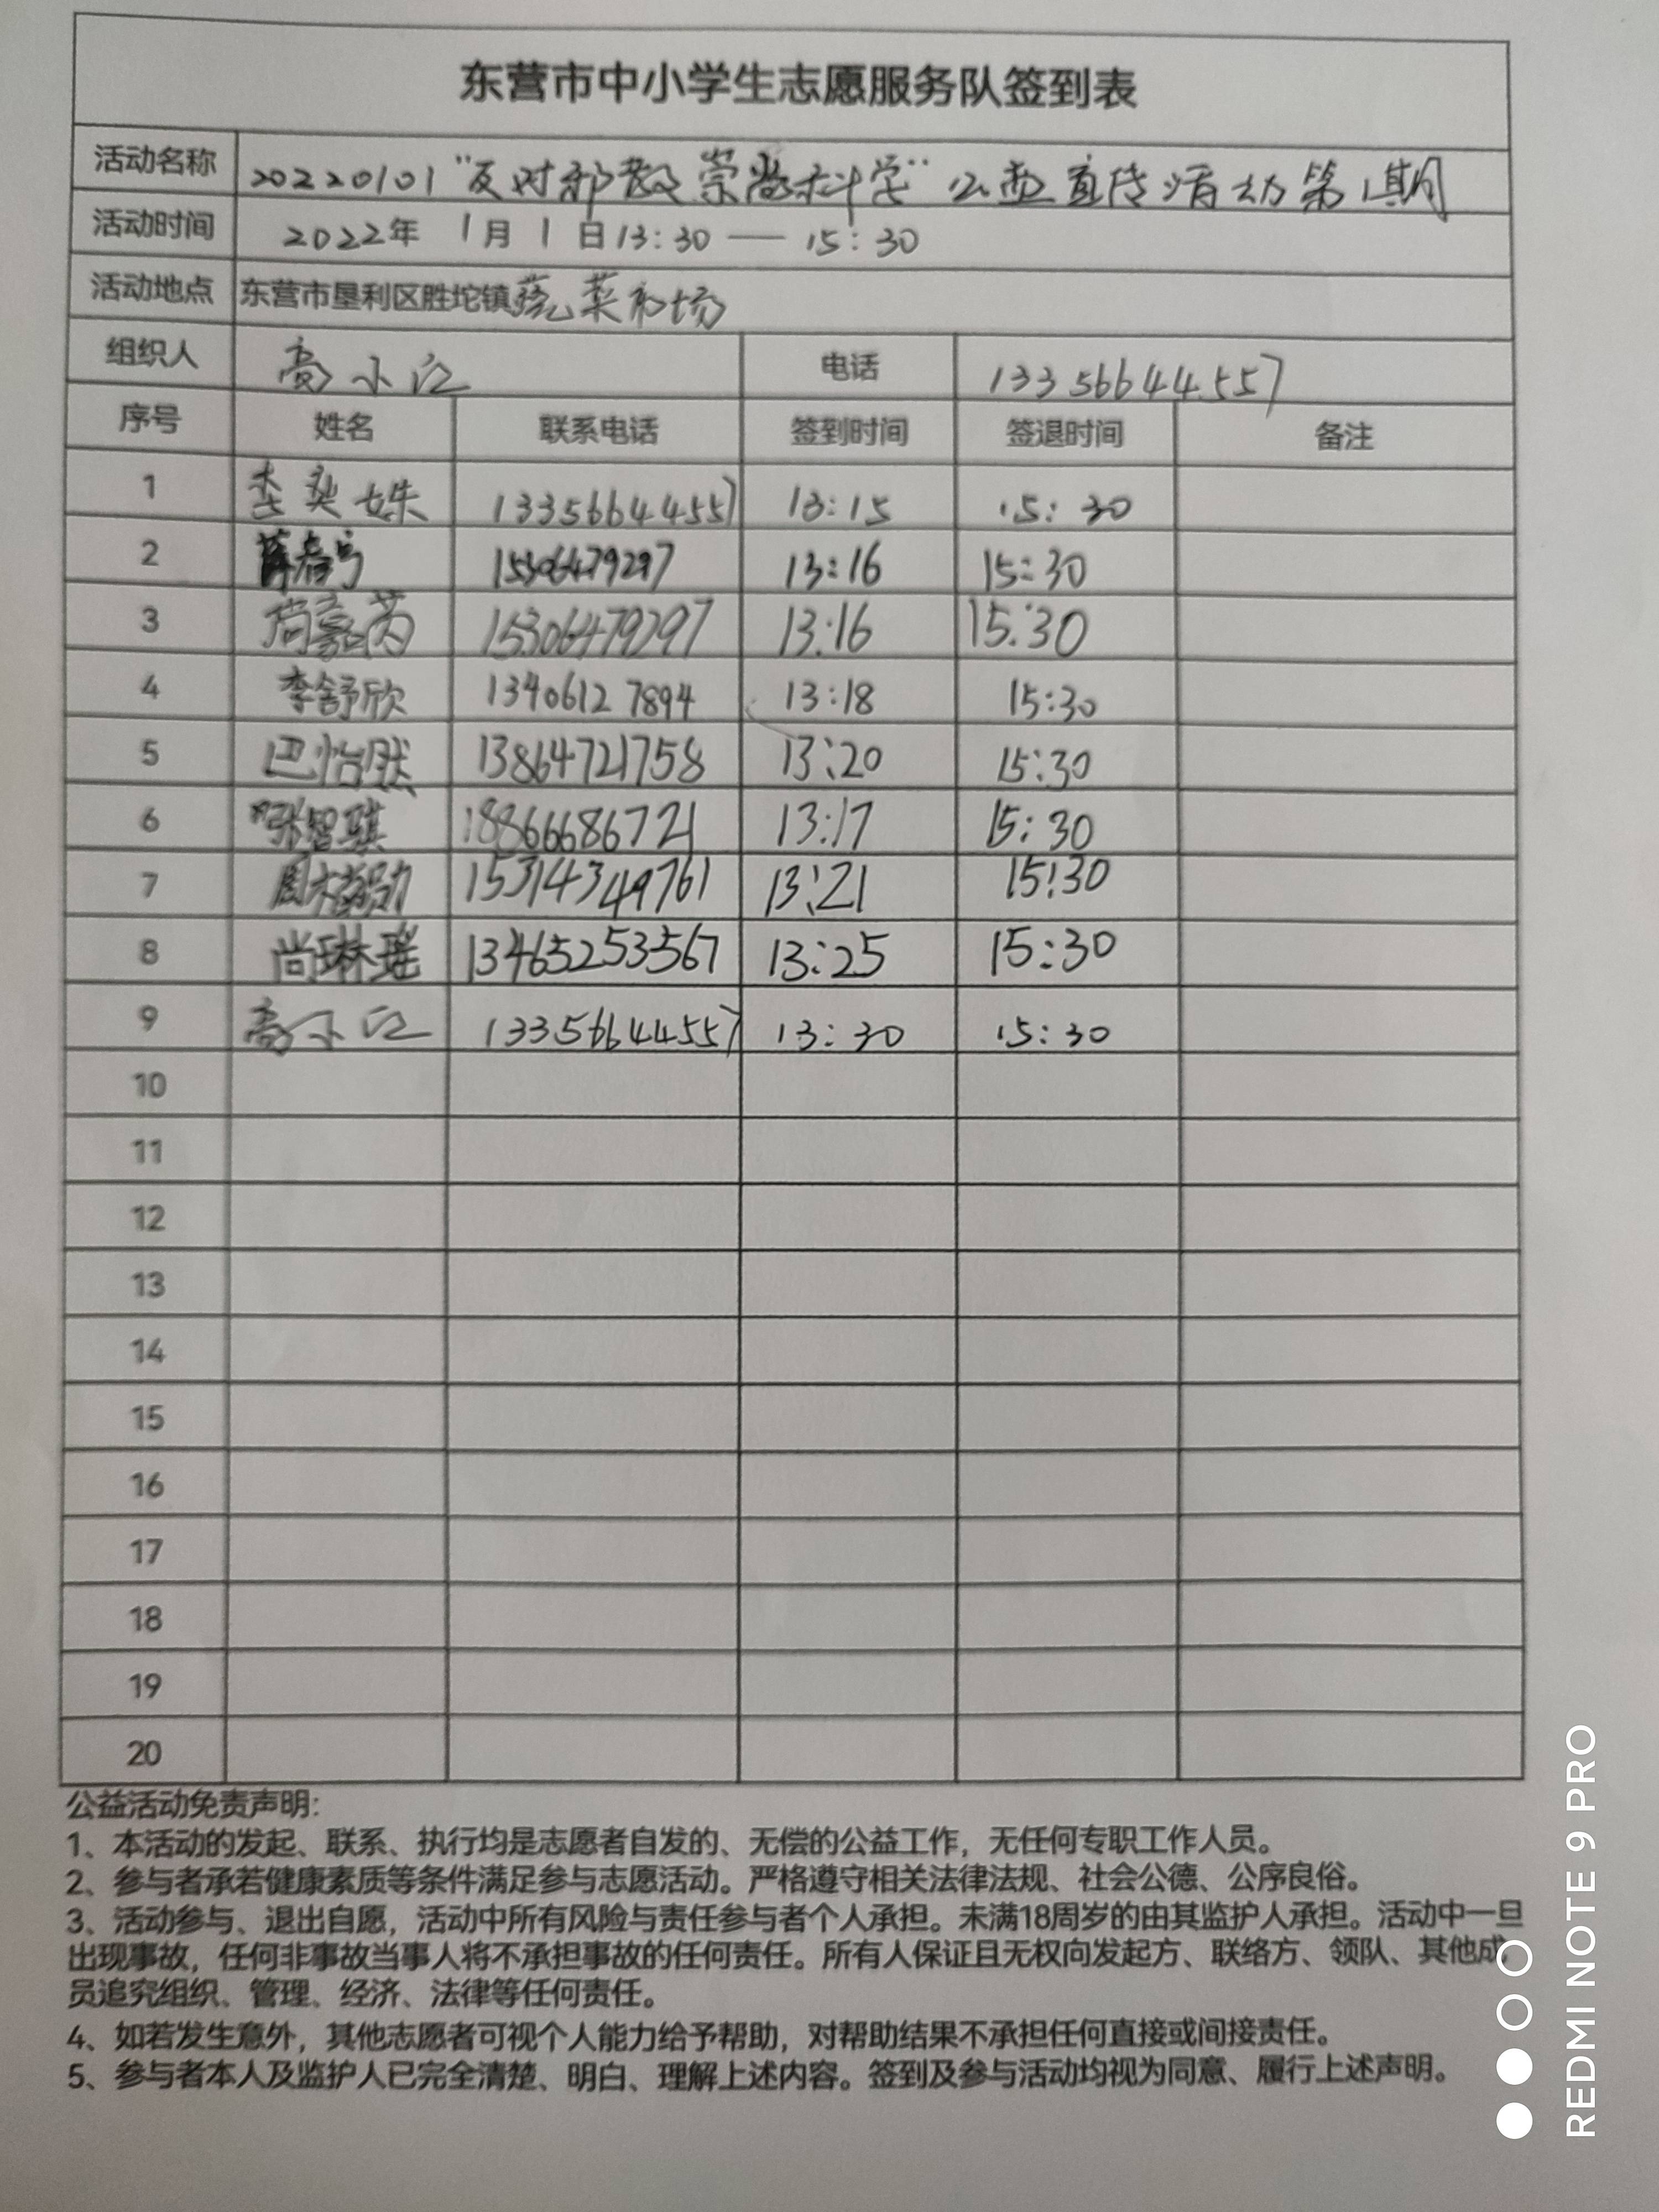 东营市中小学生志愿服务队签到表
活动名称 20220101“反对邪教崇尚科学”公益宣传活动第1期
活动时间 2022年 1月 1日13:30 — 15:30
活动地点 东营市垦利区胜坨镇蔬菜市场
组织人 高小江 电话 13356644557
序号 姓名 联系电话 签到时间 签退时间 备注
1 13356644557 13:15 15:30
2 15306479297 13:16 15:30
3 尚嘉芮 15306479297 13:16 15:30
4 李舒欣 13406127894 13:18 15:30
5 巴怡然 13864721758 13:20 15:30
6 张智骐 18866686721 13:17 15:30
7 15314349761 13:21 15:30
8 尚琳瑶 13465253567 13:25 15:30
9 高小江 13356644557 13:30 15:30
10
11
12
13
14
15
16
17
18
19
20
公益活动免责声明:
1、本活动的发起、联系、执行均是志愿者自发的、无偿的公益工作，无任何专职工作人员。
2、参与者承若健康素质等条件满足参与志愿活动。严格遵守相关法律法规、社会公德、公序良俗。
3、活动参与、退出自愿，活动中所有风险与责任参与者个人承担。未满18周岁的由其监护人承担。活动中一旦
出现事故，任何非事故当事人将不承担事故的任何责任。所有人保证且无权向发起方、联络方、领队、其他成
员追究组织、管理、经济、法律等任何责任。
4、如若发生意外，其他志愿者可视个人能力给予帮助，对帮助结果不承担任何直接或间接责任。
5、参与者本人及监护人已完全清楚、明白、理解上述内容。签到及参与活动均视为同意、履行上述声明。
REDMI NOTE 9 PRO